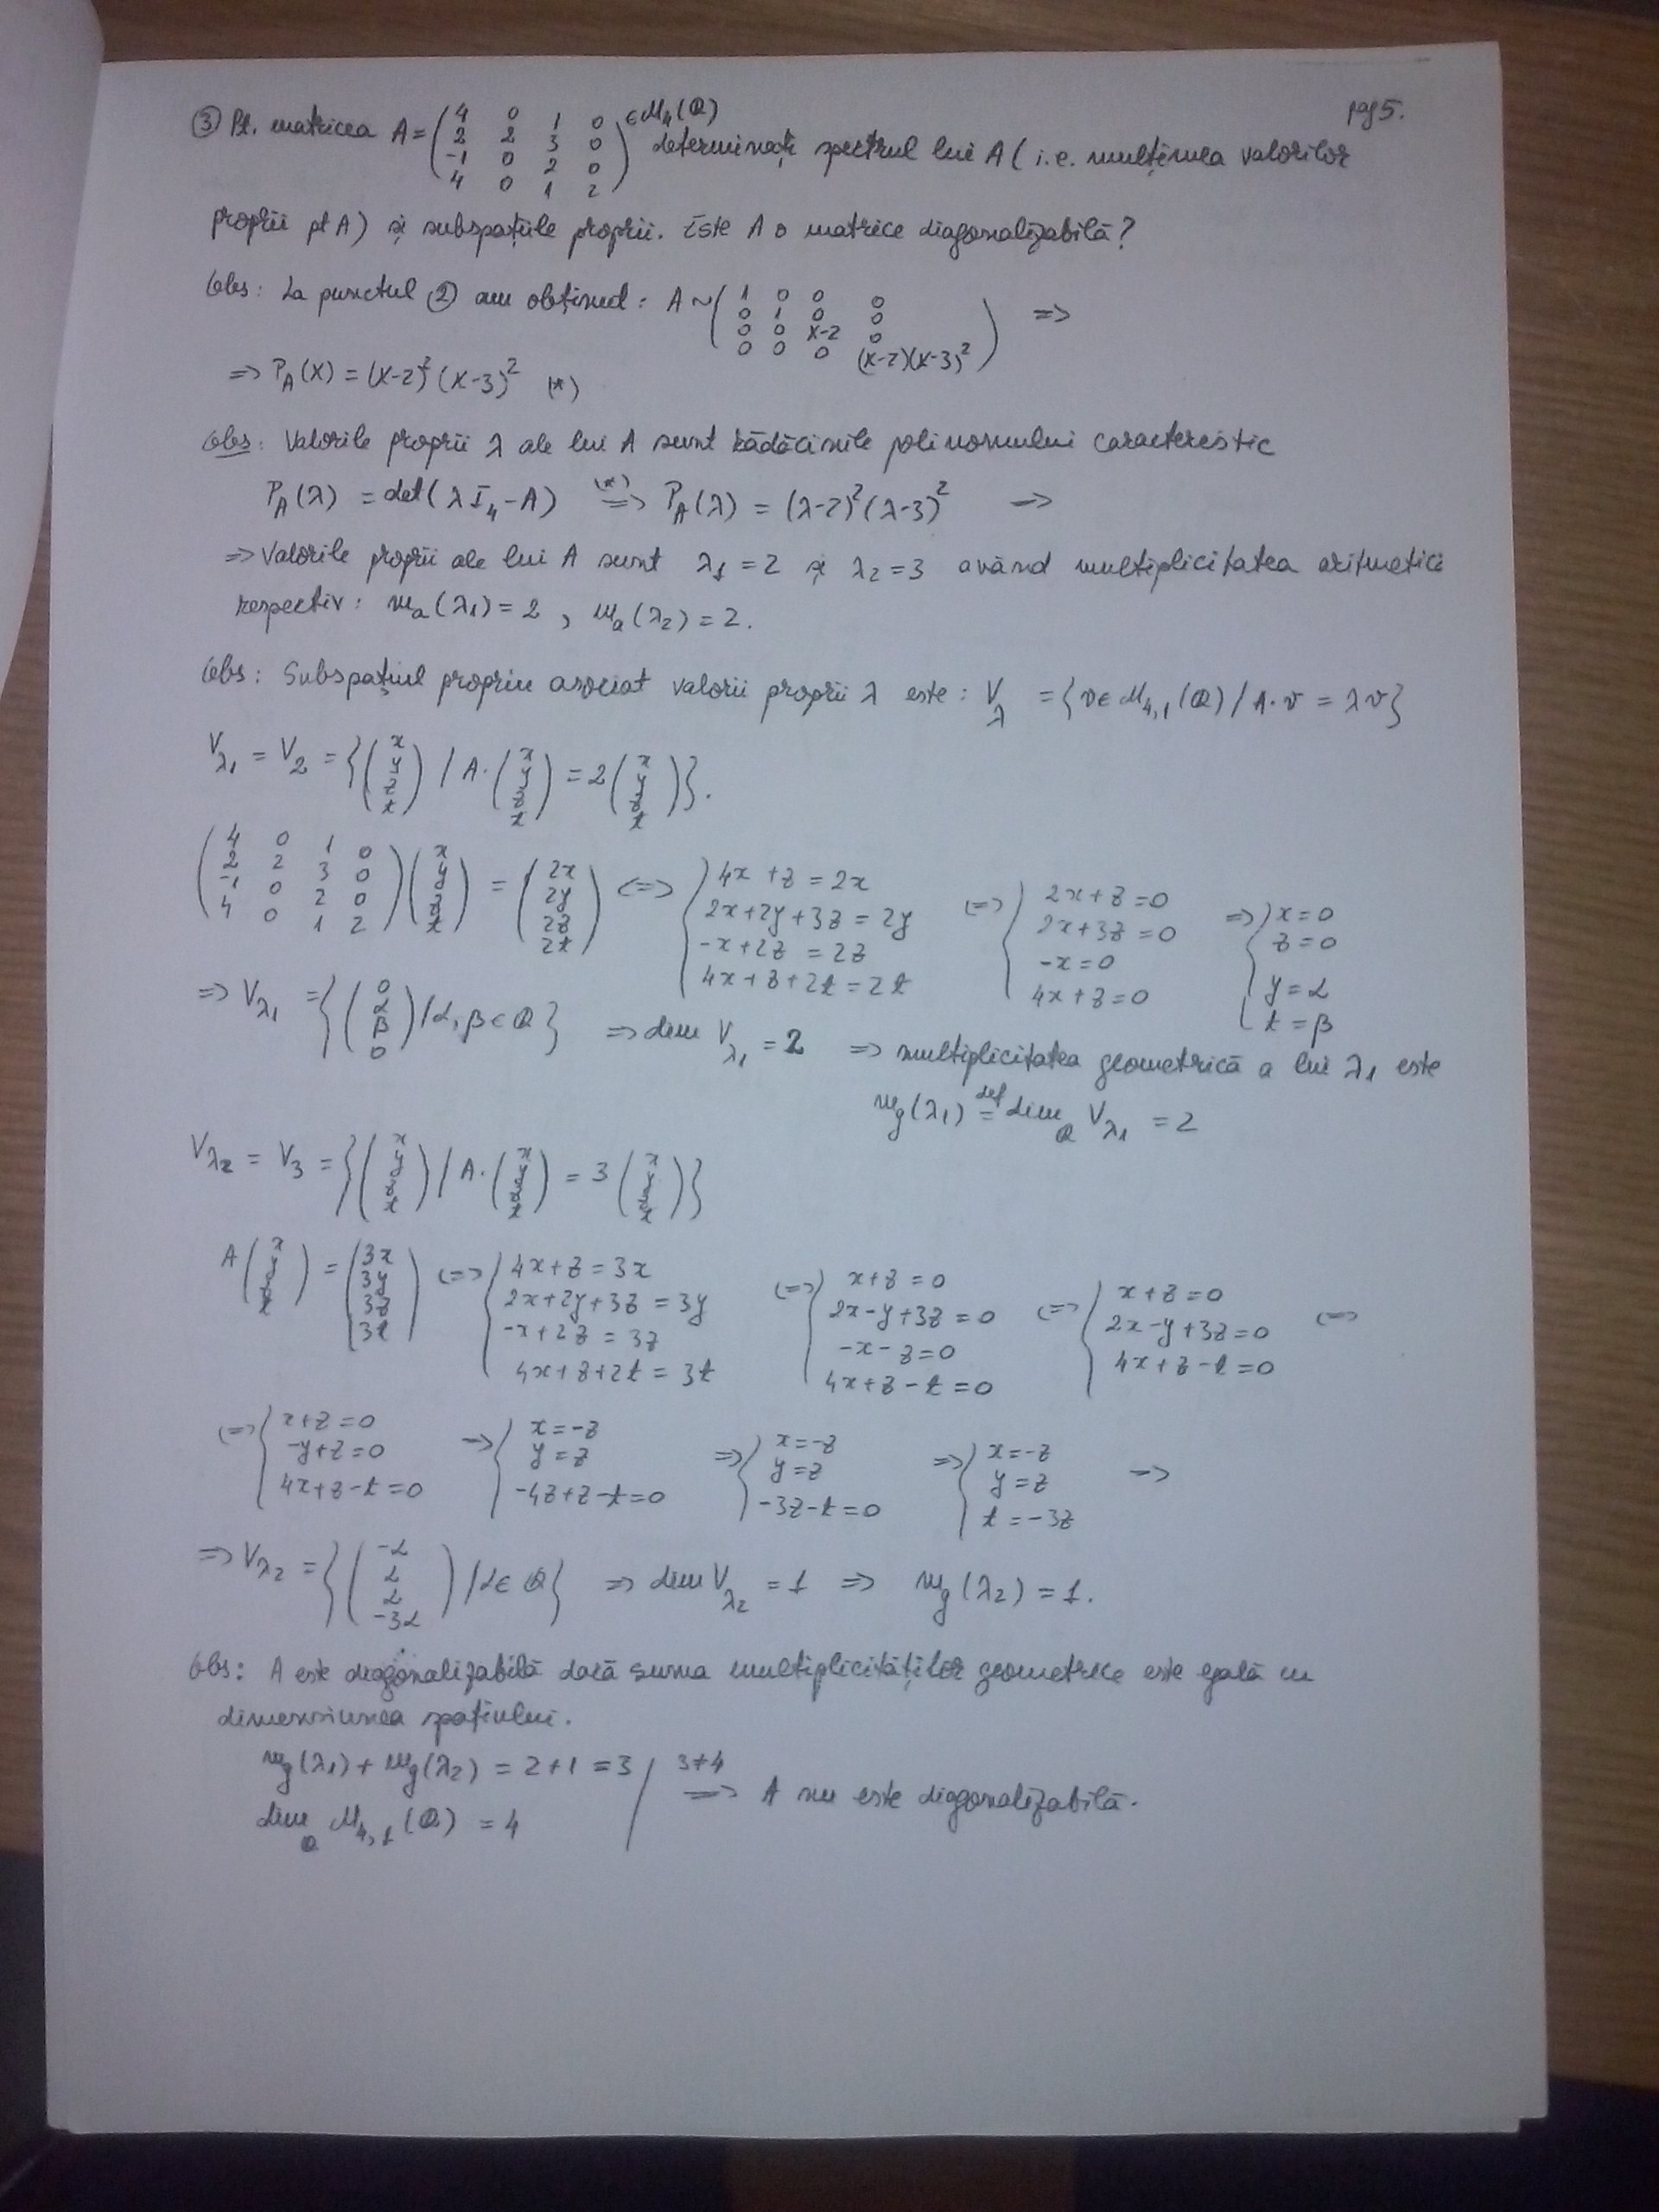 pg 5.
③ Pt. matricea A = (4 0 1 0 / 2 2 3 0 / -1 0 2 0 / 4 0 1 2) ∈ M₄(Q) determinați spectrul lui A ( i.e. mulțimea valorilor
proprii pt A) și subspațiile proprii. Este A o matrice diagonalizabilă?
Obs: La punctul ② am obținut: A ~ (1 0 0 0 / 0 1 0 0 / 0 0 X-2 0 / 0 0 0 (X-2)(X-3)²) =>
=> P_A(X) = (X-2)² (X-3)² (*)
Obs: Valorile proprii λ ale lui A sunt rădăcinile polinomului caracteristic
P_A(λ) = det(λI₄-A) (*)=> P_A(λ) = (λ-2)²(λ-3)² =>
=> Valorile proprii ale lui A sunt λ₁=2 și λ₂=3 având multiplicitatea aritmetică
respectiv: m_a(λ₁)=2 , m_a(λ₂)=2.
Obs: Subspațiul propriu asociat valorii proprii λ este: V_λ = {v∈M₄,₁(Q) / A·v = λv}
V_λ₁ = V₂ = {(x y z t) / A·(x y z t) = 2(x y z t)}.
(4 0 1 0 / 2 2 3 0 / -1 0 2 0 / 4 0 1 2)(x y z t) = (2x 2y 2z 2t) <=> {4x+z=2x / 2x+2y+3z=2y / -x+2z=2z / 4x+z+2t=2t <=> {2x+z=0 / 2x+3z=0 / -x=0 / 4x+z=0 => {x=0 / z=0 / y=α / t=β
=> V_λ₁ = {(0 α β 0) / α, β∈Q} => dim V_λ₁ = 2 => multiplicitatea geometrică a lui λ₁ este
m_g(λ₁) def= dim_Q V_λ₁ = 2
V_λ₂ = V₃ = {(x y z t) / A·(x y z t) = 3(x y z t)}
A(x y z t) = (3x 3y 3z 3t) <=> {4x+z=3x / 2x+2y+3z=3y / -x+2z=3z / 4x+z+2t=3t <=> {x+z=0 / 2x-y+3z=0 / -x-z=0 / 4x+z-t=0 <=> {x+z=0 / 2x-y+3z=0 / 4x+z-t=0 <=>
<=> {x+z=0 / -y+z=0 / 4x+z-t=0 => {x=-z / y=z / -4z+z-t=0 => {x=-z / y=z / -3z-t=0 => {x=-z / y=z / t=-3z =>
=> V_λ₂ = {(-α α α -3α) / α∈Q} => dim V_λ₂ = 1 => m_g(λ₂) = 1.
Obs: A este diagonalizabilă dacă suma multiplicităților geometrice este egală cu
dimensiunea spațiului.
m_g(λ₁) + m_g(λ₂) = 2+1 = 3 / 3≠4
dim_Q M₄,₁(Q) = 4 => A nu este diagonalizabilă.